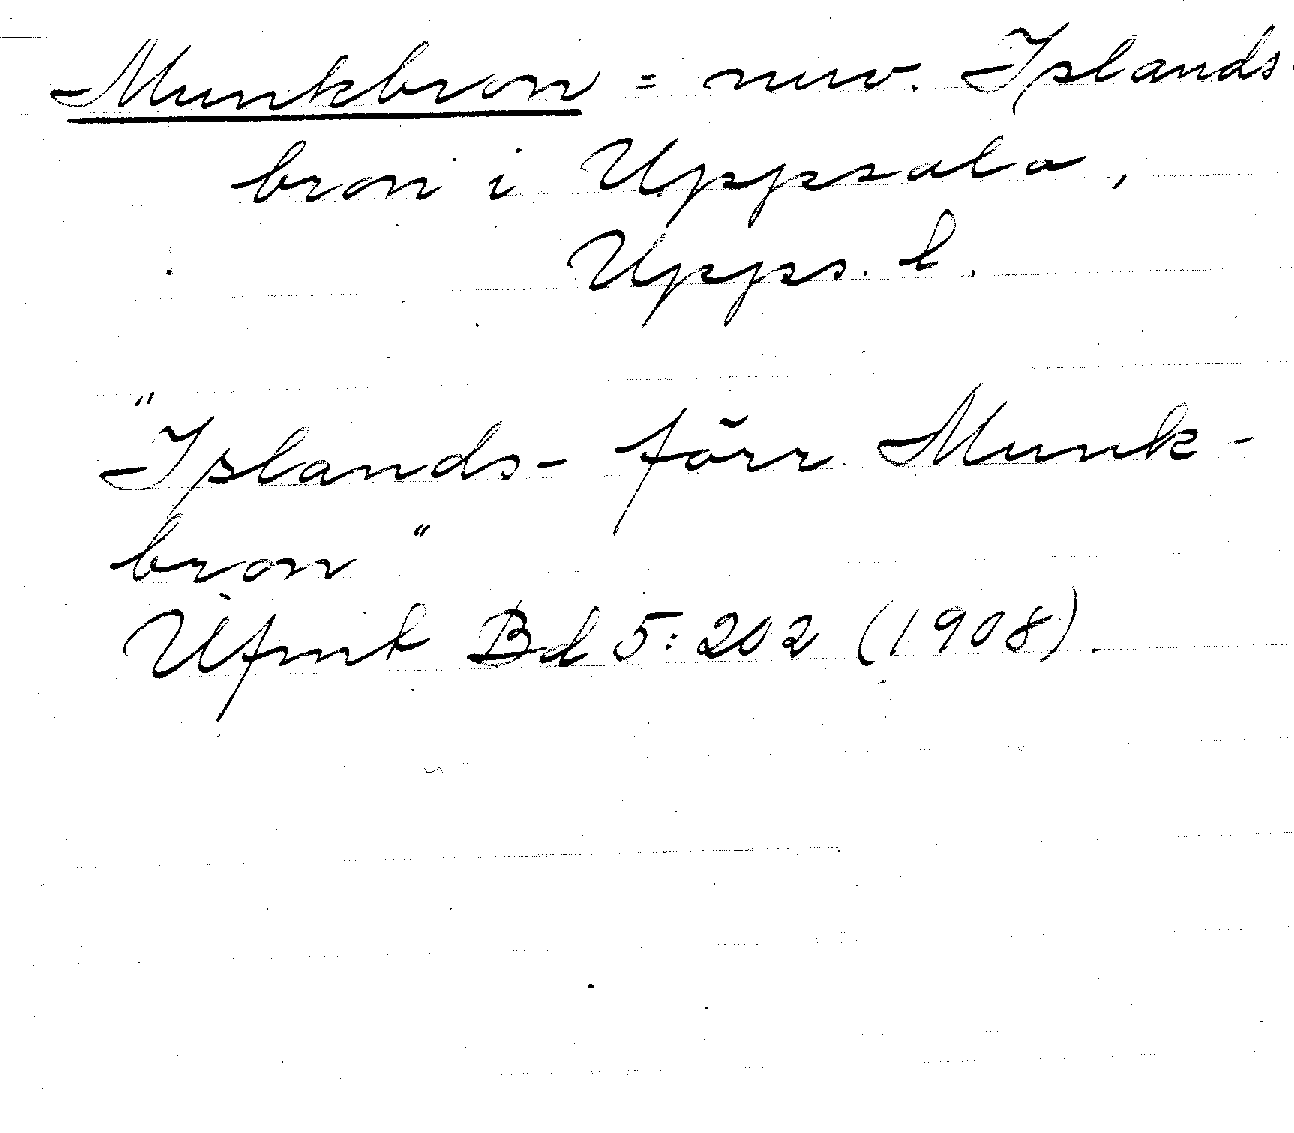 Munkbron = nuv. Islands-
bron i Uppsala,
Upps. l.
"Islands- förr Munk-
bron"
Ufmt Bd 5: 202 (1908)